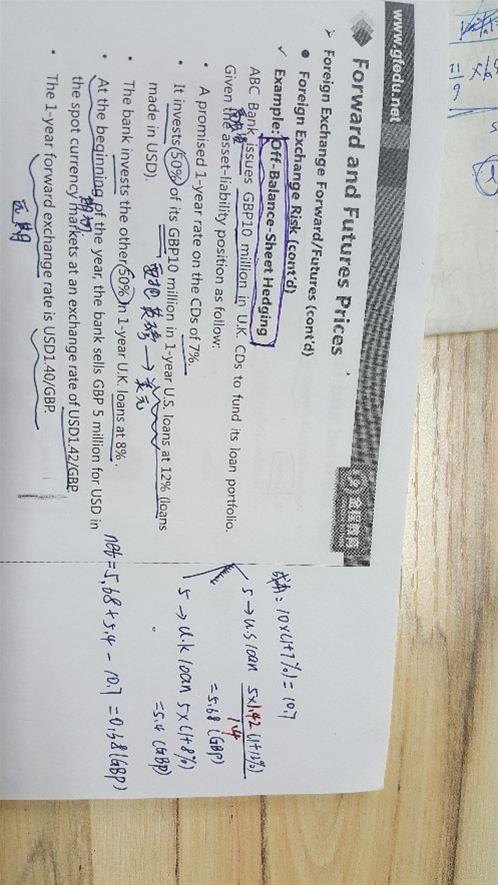 www.gfedu.net
金程教育
Forward and Futures Prices
➢ Foreign Exchange Forward/Futures (cont'd)
● Foreign Exchange Risk (cont'd)
✓ Example: Off-Balance-Sheet Hedging
ABC Bank issues GBP10 million in U.K. CDs to fund its loan portfolio.
Given the asset-liability position as follow:
• A promised 1-year rate on the CDs of 7%.
• It invests 50% of its GBP10 million in 1-year U.S. loans at 12% (loans
made in USD).
• The bank invests the other 50% in 1-year U.K. loans at 8%.
• At the beginning of the year, the bank sells GBP 5 million for USD in
the spot currency markets at an exchange rate of USD1.42/GBP.
• The 1-year forward exchange rate is USD1.40/GBP.
→ 美元
期初
远期
成本: 10×(1+7%) = 10.7
5 → U.S loan 5×1.42(1+12%)
1.4
= 5.68 (GBP)
5 → U.K loan 5×(1+8%)
= 5.4 (GBP)
net = 5.68 + 5.4 - 10.7 = 0.38 (GBP)